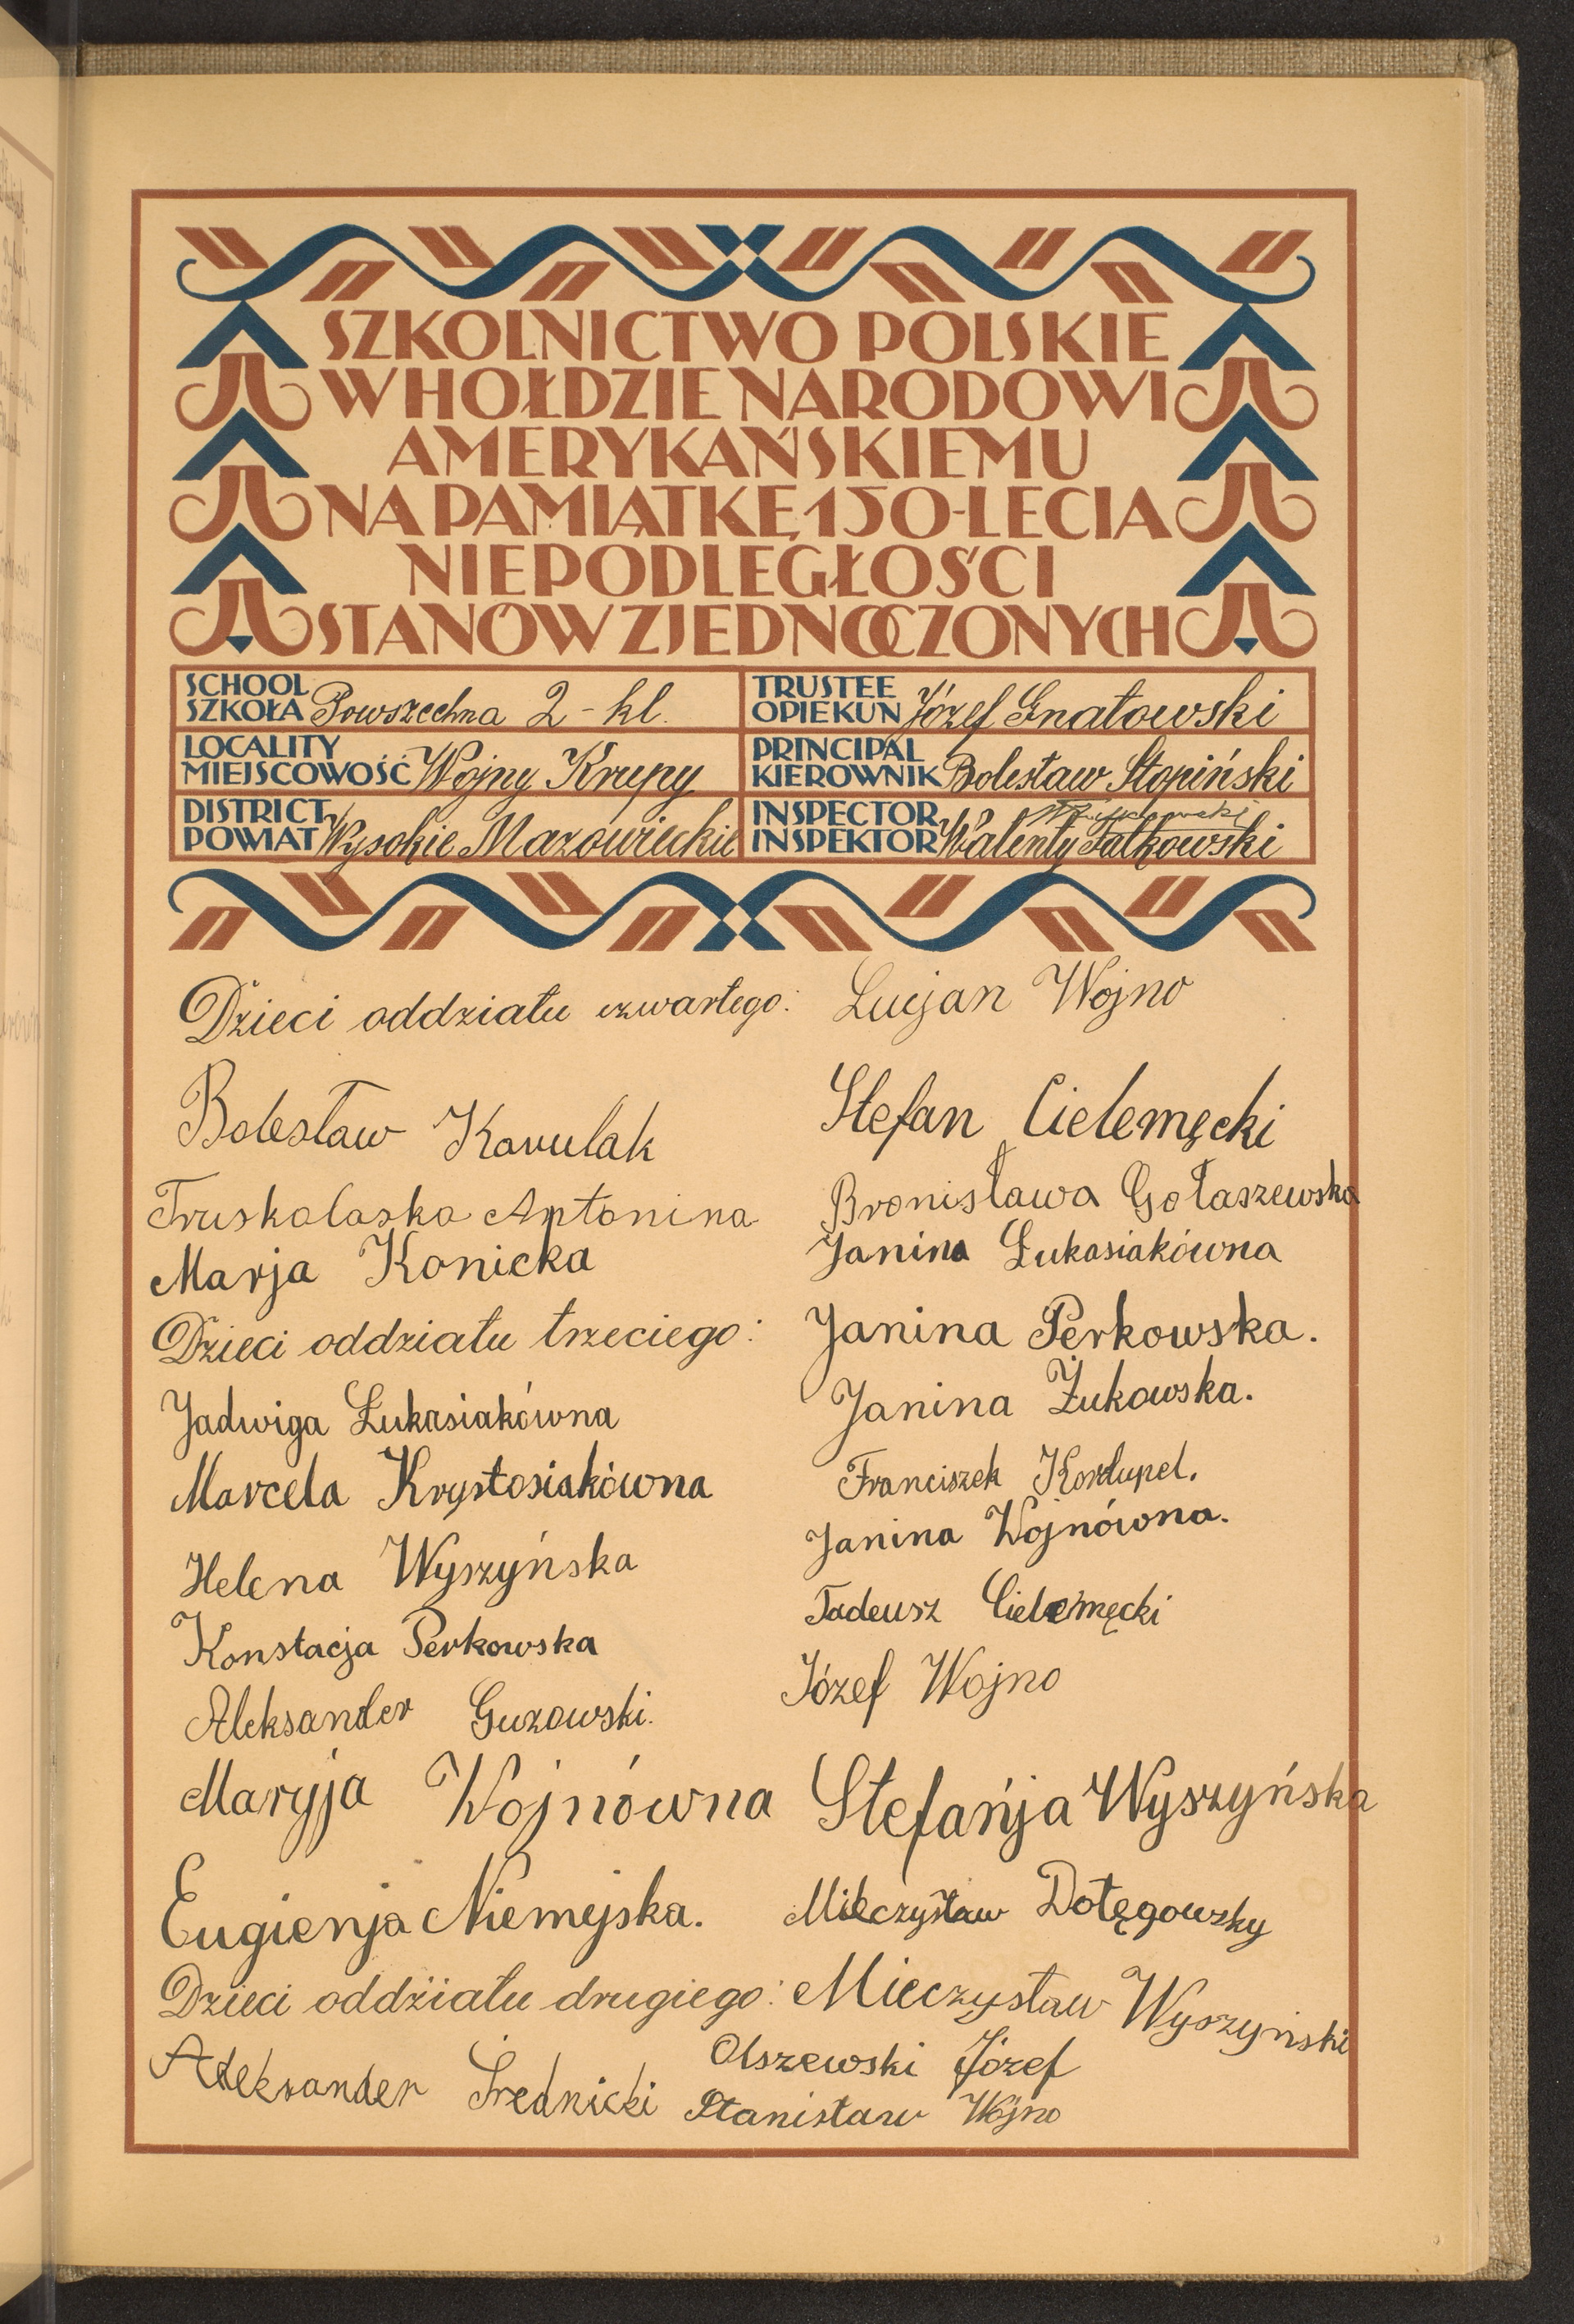 SZKOLNICTWO POLSKIE
W HOŁDZIE NARODOWI
AMERYKAŃSKIEMU
NA PAMIĄTKĘ 150-LECIA
NIEPODLEGŁOŚCI
STANÓW ZJEDNOCZONYCH
SCHOOL
SZKOŁA Powszechna 2-kl.
TRUSTEE
OPIEKUN Józef Gnatowski
LOCALITY
MIEJSCOWOŚĆ Wojny Krupy
PRINCIPAL
KIEROWNIK Bolesław Stopiński
DISTRICT
POWIAT Wysokie Mazowieckie
INSPECTOR
INSPEKTOR Walenty Fatkowski
Dzieci oddziału czwartego:
Bolesław Karulak
Truskalaska Antonina
Marja Konicka
Dzieci oddziału trzeciego:
Jadwiga Łukasiakówna
Marcela Krystosiakówna
Helena Wyszyńska
Konstacja Perkowska
Aleksander Guzowski.
Maryja Wojnówna
Eugienja Niemyjska.
Dzieci oddziału drugiego:
Aleksander Średnicki
Lucjan Wojno
Stefan Cielemęcki
Bronisława Gołaszewska
Janina Łukasiakówna
Janina Perkowska.
Janina Żukowska.
Franciszek Kordupel.
Janina Wojnówna.
Tadeusz Cielemęcki
Józef Wojno
Stefańja Wyszyńska
Mieczysław Dołęgowzky
Mieczysław Wyszyński
Olszewski Józef
Stanisław Wojno